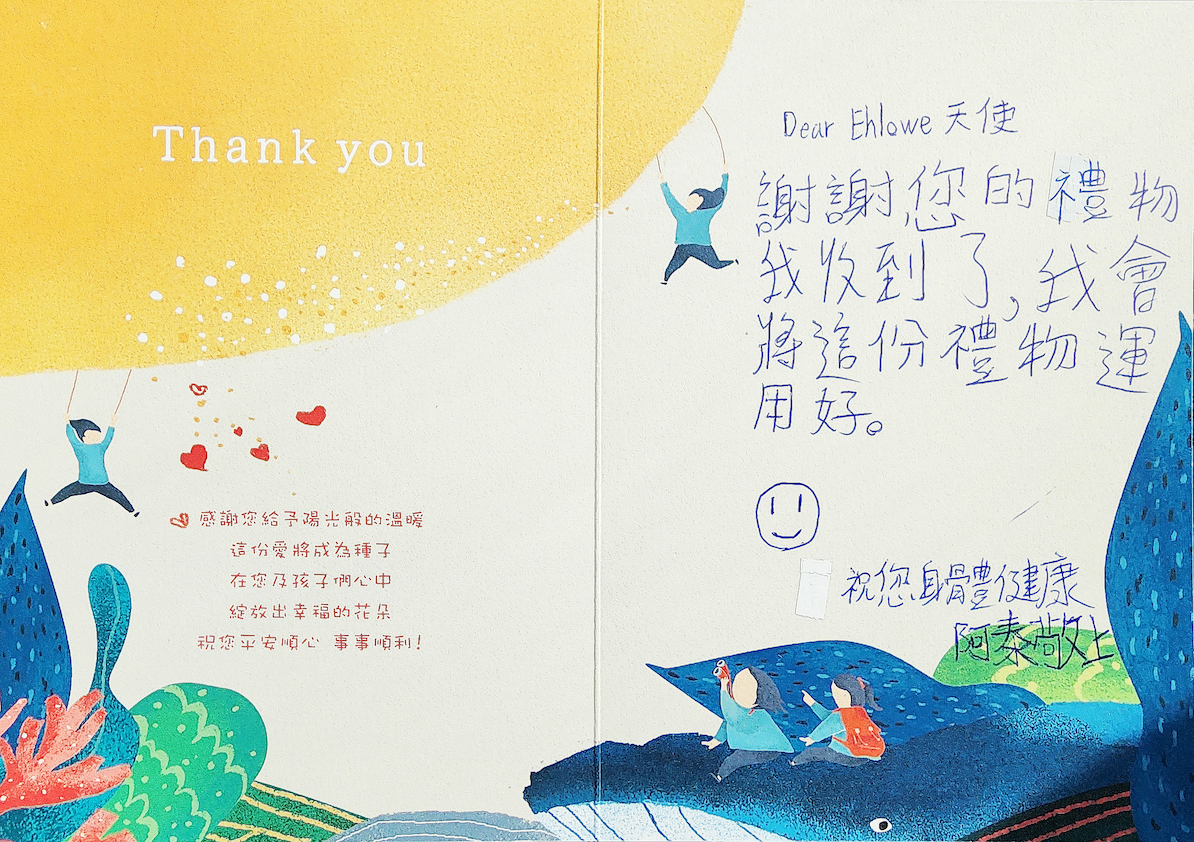 Thank you
感謝您給予陽光般的溫暖
這份愛將成為種子
在您及孩子們心中
綻放出幸福的花朵
祝您平安順心 事事順利!
Dear Ehlowe 天使
謝謝您的禮物
我收到了,我會
將這份禮物運
用好。
祝您身體健康
阿泰敬上